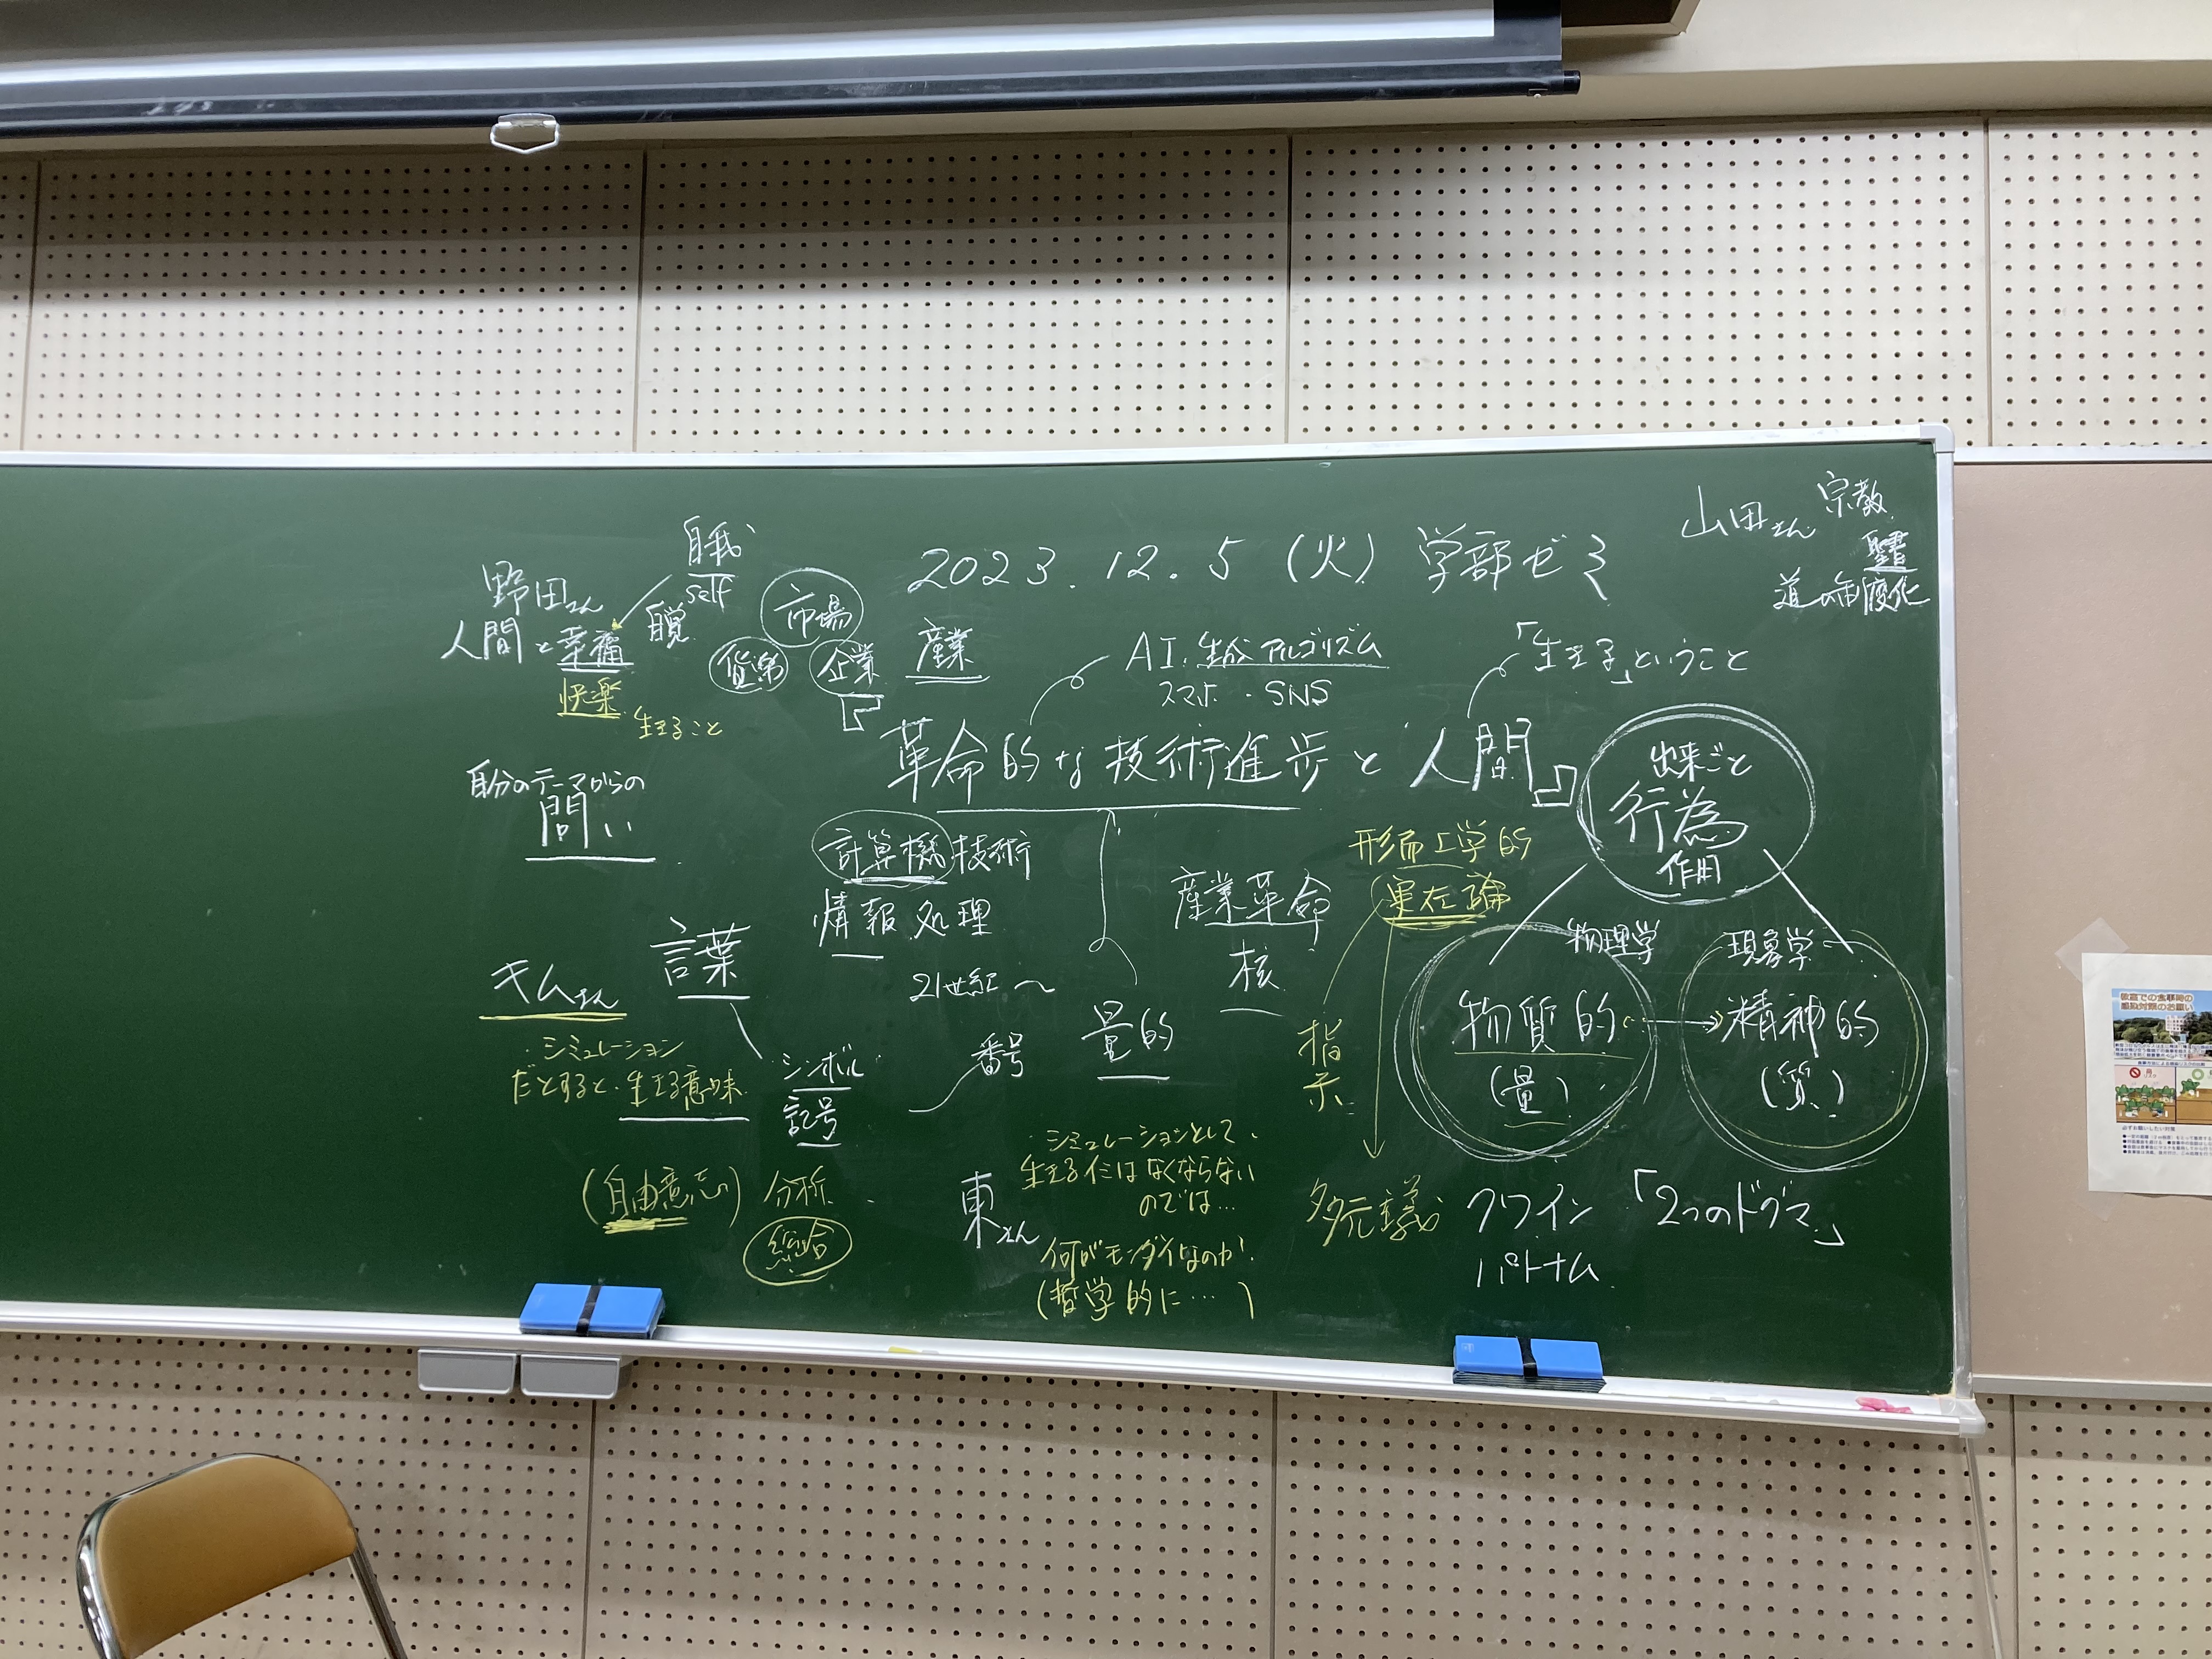 2023.12.5 (火) 学部ゼミ
山田さん 宗教
聖書
道の制度化
自我
self
野田さん
人間と幸福
自覚
快楽
生きること
市場
貨幣
企業
産業
AI. 生成アルゴリズム
スマホ・SNS
「生きる」ということ
『革命的な技術進歩と人間』
自分のテーマからの
問い
計算機技術
情報処理
21世紀〜
量的
産業革命
核
言葉
シンボル
記号
番号
キムさん
・シミュレーション
だとすると・生きる意味
(自由意志)
分析
総合
東さん
・シミュレーションとして
生きるイミはなくならない
のでは…
何がモンダイなのか
(哲学的に…)
形而上学的
実在論
指示
多元主義
出来ごと
行為
作用
物理学
物質的
(量)
現象学
精神的
(質)
クワイン「2つのドグマ」
パトナム
教室での食事時の
感染対策のお願い